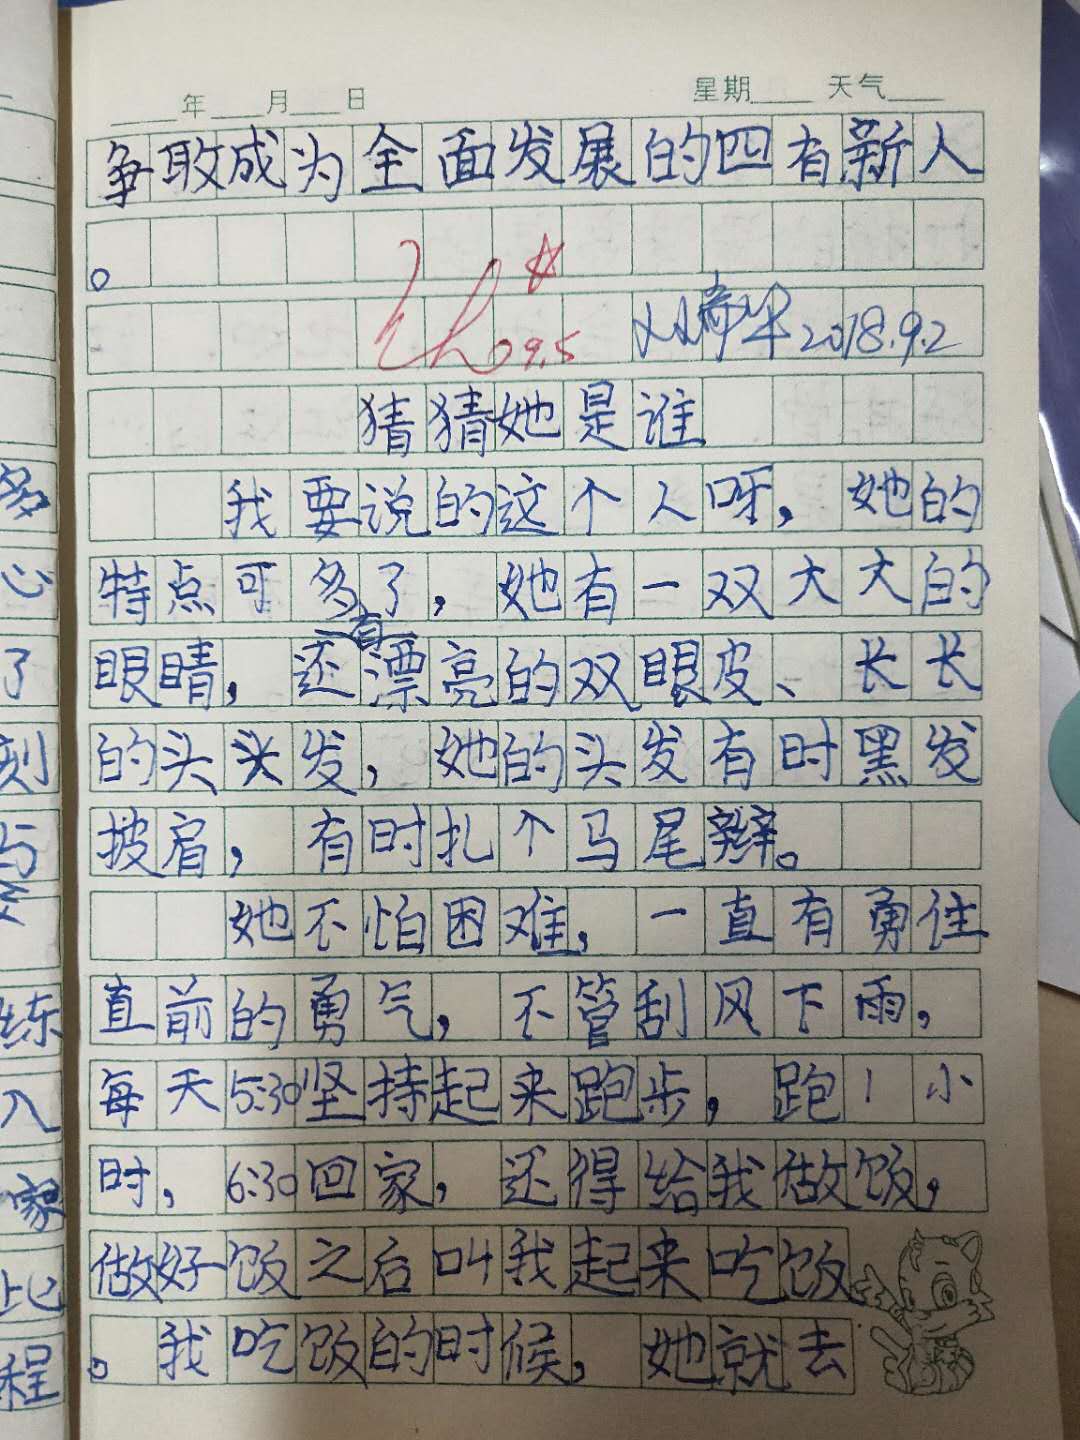 年 月 日 星期 天气
争取成为全面发展的四有新人
。
9.5 2018.9.2
猜猜她是谁
我要说的这个人呀，她的
特点可多了，她有一双大大的
眼睛，还有漂亮的双眼皮、长长
的头头发，她的头发有时黑发
披肩，有时扎个马尾辫。
她不怕困难，一直有勇往
直前的勇气，不管刮风下雨，
每天5:30坚持起来跑步，跑1小
时，6:30回家，还得给我做饭，
做好饭之后叫我起来吃饭
。我吃饭的时候，她就去
多
心
了
刻
与
练
入
家
比
程